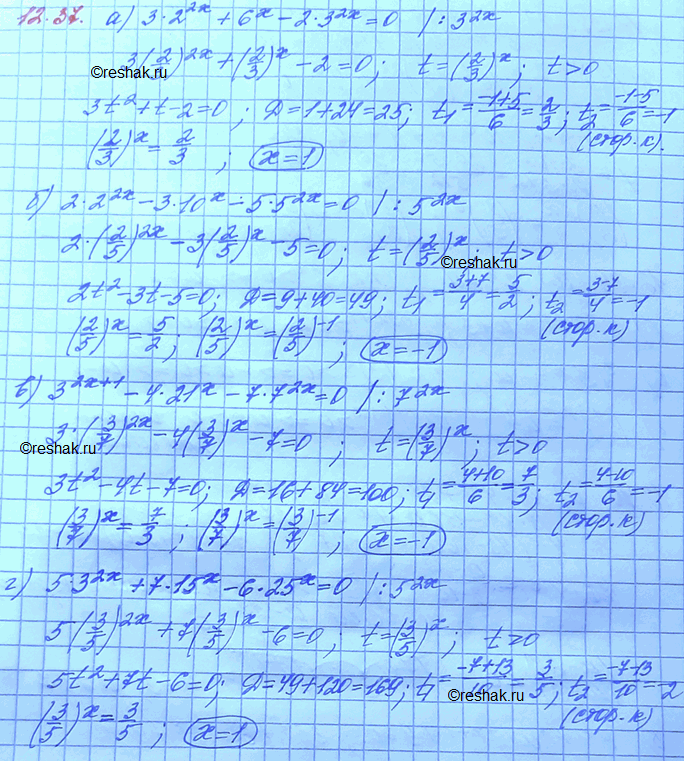 12.37. а) 3·2^{2x} + 6^x − 2·3^{2x} = 0 /: 3^{2x}
3(2/3)^{2x} + (2/3)^x − 2 = 0; t = (2/3)^x; t > 0
©reshak.ru
3t² + t − 2 = 0; D = 1 + 24 = 25; t₁ = (−1+5)/6 = 2/3; t₂ = (−1−5)/6 = −1
(2/3)^x = 2/3; x = 1 (стор. к).
б) 2·2^{2x} − 3·10^x − 5·5^{2x} = 0 /: 5^{2x}
2·(2/5)^{2x} − 3(2/5)^x − 5 = 0; t = (2/5)^x; t > 0
©reshak.ru
2t² − 3t − 5 = 0; D = 9 + 40 = 49; t₁ = (3+7)/4 = 5/2; t₂ = (3−7)/4 = −1
(2/5)^x = 5/2; (2/5)^x = (2/5)^{−1}; x = −1 (стор. к)
в) 3^{2x+1} − 4·21^x − 7·7^{2x} = 0 /: 7^{2x}
3·(3/7)^{2x} − 4(3/7)^x − 7 = 0; t = (3/7)^x; t > 0
©reshak.ru
3t² − 4t − 7 = 0; D = 16 + 84 = 100; t₁ = (4+10)/6 = 7/3; t₂ = (4−10)/6 = −1
(3/7)^x = 7/3; (3/7)^x = (3/7)^{−1}; x = −1 (стор. к)
г) 5·3^{2x} + 7·15^x − 6·25^x = 0 /: 5^{2x}
5(3/5)^{2x} + 7(3/5)^x − 6 = 0; t = (3/5)^x; t > 0
5t² + 7t − 6 = 0; D = 49 + 120 = 169; t₁ = (−7+13)/10 = 3/5; t₂ = (−7−13)/10 = −2
©reshak.ru
(3/5)^x = 3/5; x = 1 (стор. к)